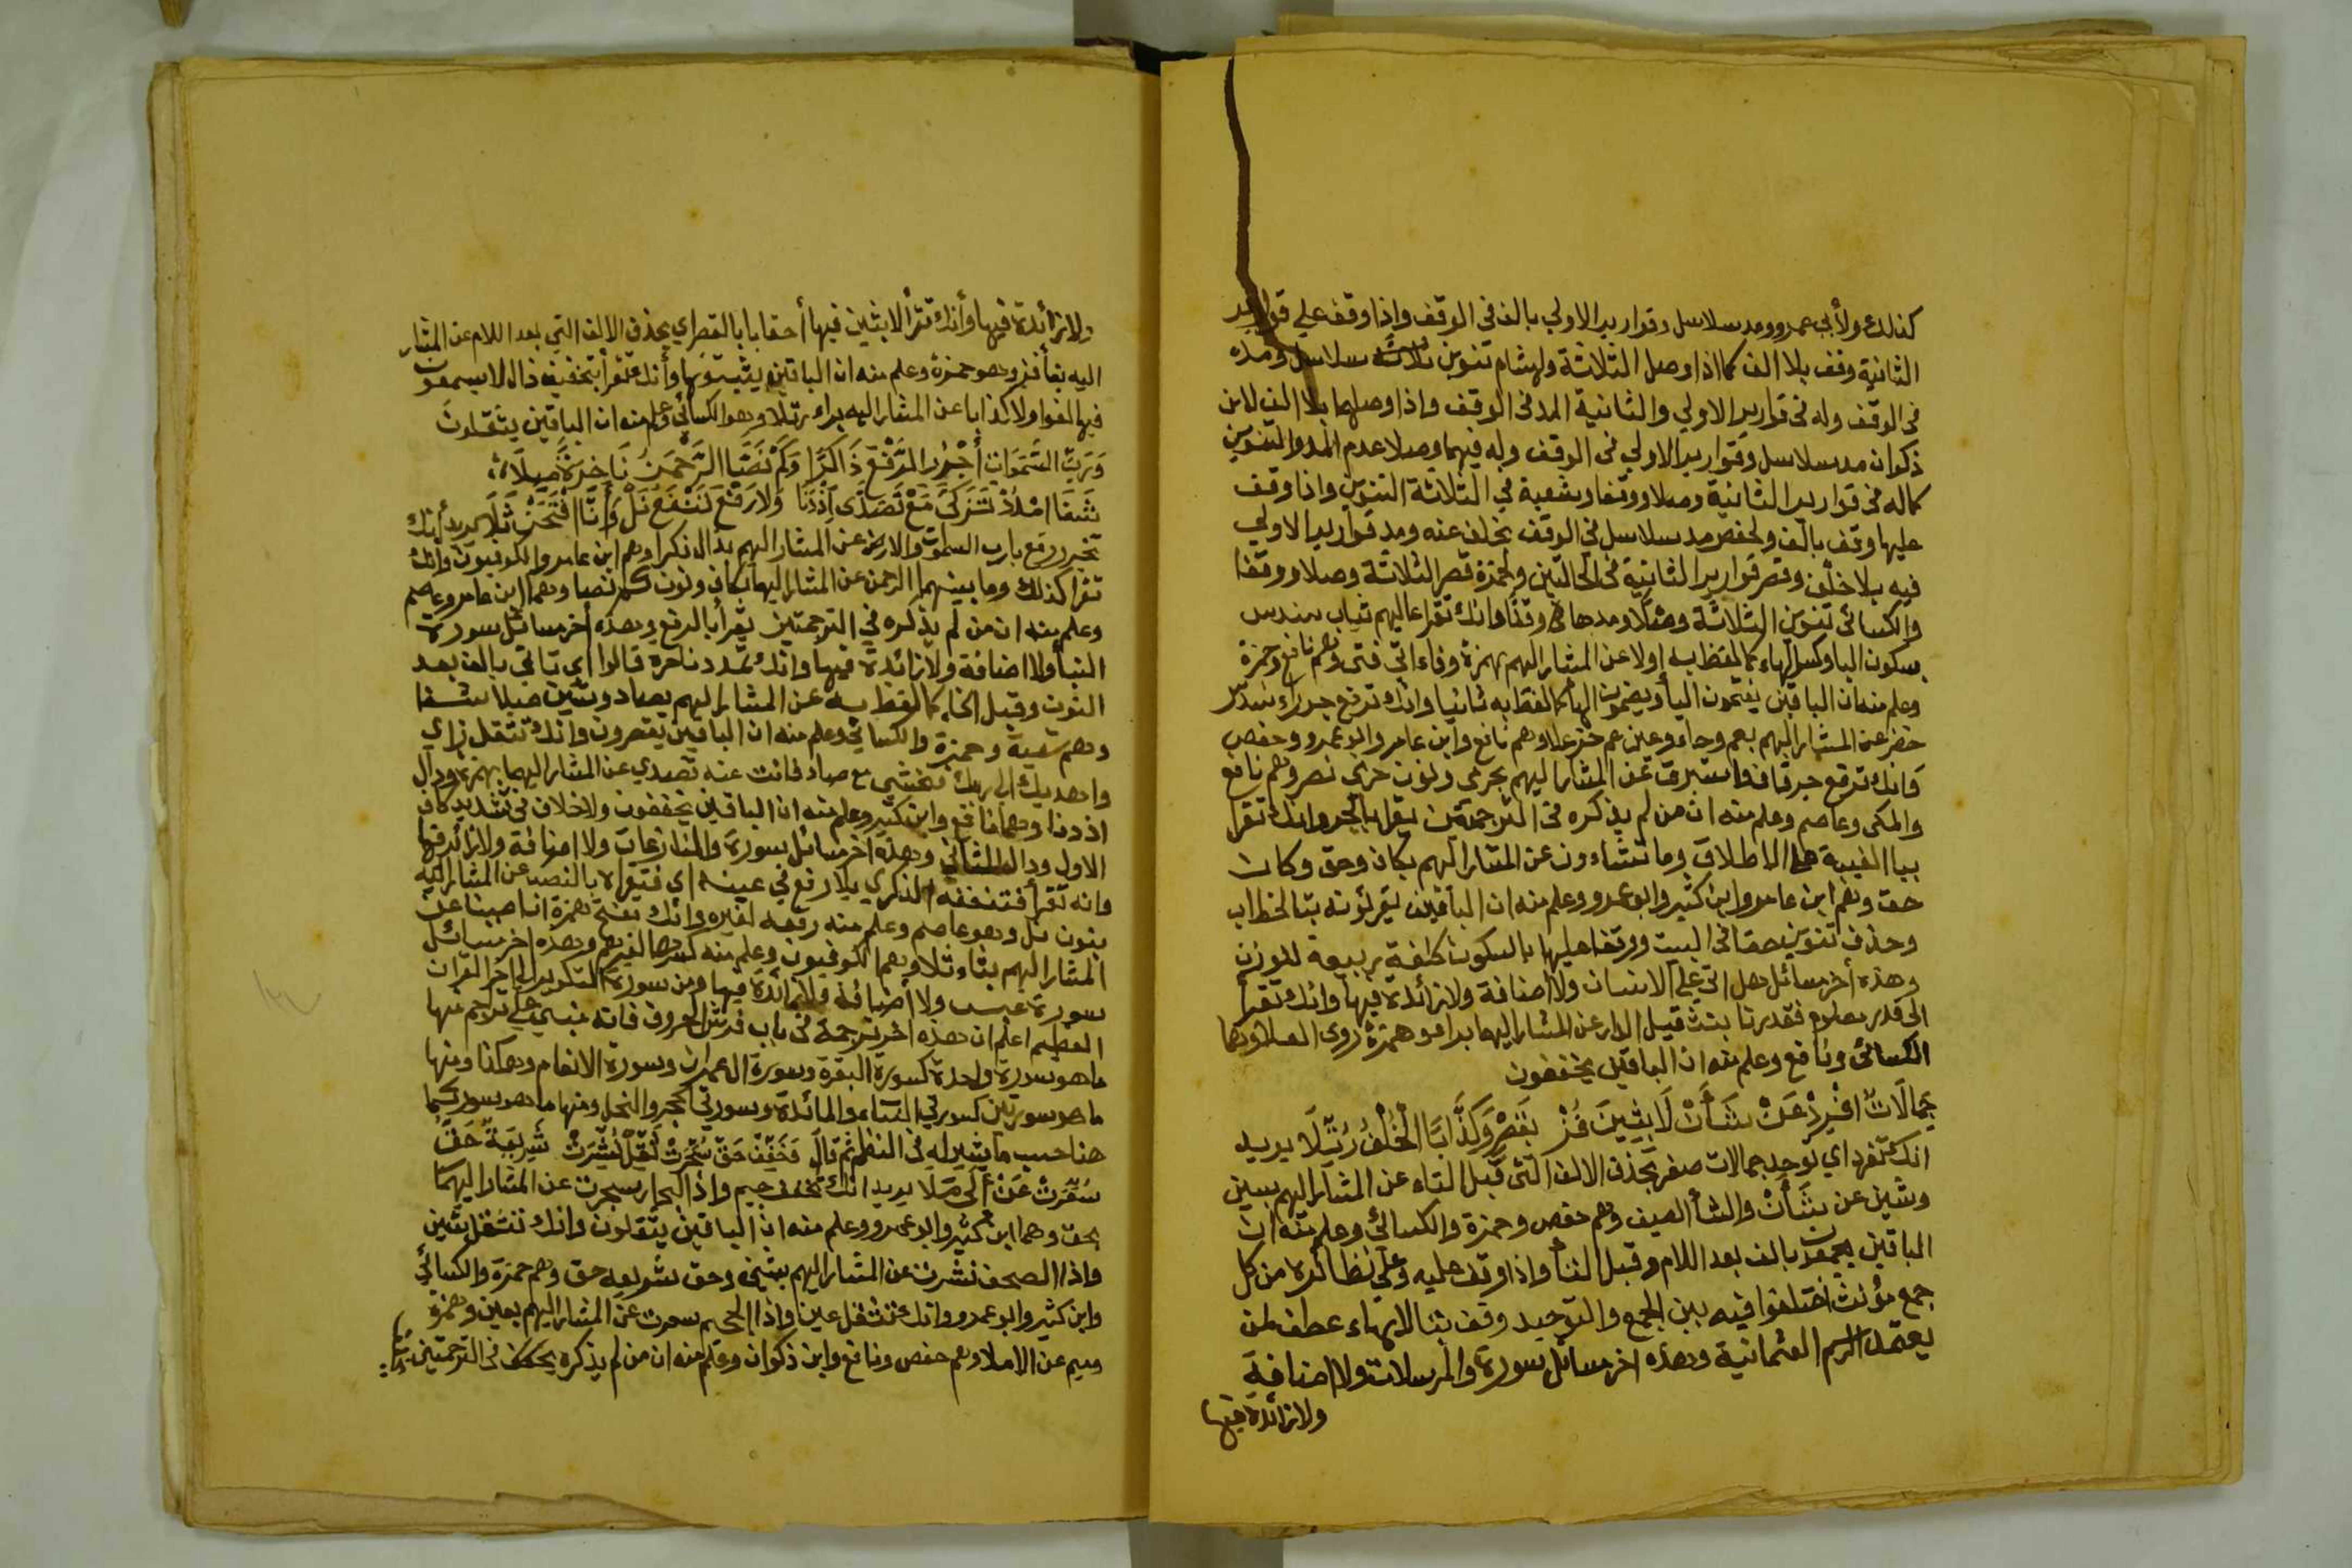 كذلك ولأبي عمرو ومد سلاسل وقوارير الاولي بالف في الوقف واذا وقف علي قوارير
الثانية وقف بلا الف كما اذا وصل الثلاثة ولهشام تنوين ثلاثة سلاسل ومده
في الوقف وله في قوارير الاولي والثانية المد في الوقف واذا وصلهما بلا الف لابن
ذكوان مد سلاسل وقوارير الاولي في الوقف وله فيهما وصلا عدم المد والتنوين
كماله في قوارير الثانية وصلا ووقفا وشعبة في الثلاثة التنوين واذا وقف
عليها وقف بالف ولحفص مد سلاسل في الوقف بخلف عنه ومد قوارير الاولي
فيه بلا خلف وقصر قوارير الثانية في الحالتين ولحمزة قصر الثلاثة وصلا ووقفا
والكسائي تنوين الثلاثة وصلا ومدها في وقفا وانك تقرا عاليهم ثياب سندس
بسكون اليا وكسر الهاء كما لفظ به اولا عن المشار اليهم بهمزة وفاء اتي فتي وهم نافع وحمزة
وعلم منه ان الباقين يفتحون اليا ويضمون الها كما لفظ به ثانيا وانك ترفع جر راء سندس
خضر عن المشار اليهم بعم وحاء وعين عم حز علا وهم نافع وابن عامر وابو عمرو وحفص
وانك ترفع جر قاف واستبرق عن المشار اليهم بحرمي ونون حرمي نصر وهم نافع
والمكي وعاصم وعلم منه ان من لم يذكره في الترجمتين يقرا بالجر وانك تقرا
بيا الغيبة علي الاطلاق وما تشاءون عن المشار اليهم بكاف وحق وكاف
حق وهم ابن عامر وابن كثير وابو عمرو وعلم منه ان الباقين يقرئونه بتا الخطاب
وحذف تنوين حقا في البيت ووقف عليها بالسكون كلغة ربيعة للوزن
وهذه أخر مسائل هل اتي علي الانسان ولا اضافة ولا زائدة فيها وانك تقرا
الي قدر معلوم فقدرنا بتثقيل الدار عن المشار اليهما براء وهمزة روي العلا وهما
الكسائي ونافع وعلم منه ان الباقين يخففون
جِمَالَاتٌ افْرِدْ عَنْ شَأْنٍ لَابِثِينَ فُزْ بِقَصْرٍ وَكِذَّابًا الْخُلْفُ رُتِّلَا يريد
انك تفرد اي توحد جمالات صفر بحذف الالف التي قبل التاء عن المشار اليهم بعين
وشين عن شَأْنٍ والشأ الصيف وهم حفص وحمزة والكسائي وعلم منه ان
الباقين يجمعون بالف بعد اللام وقبل التا واذا وقف عليه وعلي نظائره من كل
جمع مؤنث اختلفوا فيه بين الجمع والتوحيد وقف بتا لا بهاء عطف لمن
يعتمد الرسم العثمانية وهذه اخر مسائل سورة والمرسلات ولا اضافة
ولا زائدة فيها
ولا زائدة فيها وأنك تقرأ لابثين فيها أحقابا بالقصر اي بحذف الالف التي بعد اللام عن المشار
اليه بفأ فز وهو حمزة وعلم منه ان الباقين يثبتونها وأنك تقرأ بتخفيف ذال لا يسمعون
فيها لغوا ولا كذابا عن المشار اليه براء رتلا وهو الكسائي وعلم منه ان الباقين يثقلون
وَرَبِّ السَّمَوَاتِ أجْرُر الرَّفْعَ ذَاكِرًا وَكَمْ نَصَبَا الرَّحْمَنِ نَاخِرَةً صِلَاهُ
شَفَا امْدُدْ تَزَكَّى مَعْ تَصَدَّى إِذْ دَنَا وَلَا رَفْعَ تَنْفَعْ نَلْ وَأَنَّا افْتَحَنْ ثَلَا يريد أنك
تجرر رفع بارب السموات والارض عن المشار اليهم بذال ذكرا وهم ابن عامر والكوفيون وأنك
تقرا كذلك وما بينهما الرحمن عن المشار اليهما بكاف ونون كم نصبا وهما ابن عامر وعاصم
وعلم منه ان من لم يذكره في الترجمتين يقرأ بالرفع وهذه أخر مسائل سورة
النبأ ولا اضافة ولا زائدة فيها وانك تمدد ناخرة قالوا اي تاتي بالف بعد
النون وقبل الخاء كما لفظ به عن المشار اليهم بصاد وشين صلا شفا
وهم شعبة وحمزة والكسائي وعلم منه ان الباقين يقصرون وانك تثقل زاي
واهديك الي ربك فتخشي مع صاد فانت عنه تصدي عن المشار اليهما بهمزة ودال
اذ دنا وهما نافع وابن كثير وعلم منه ان الباقين يخففون ولا خلاف في تشديد كاف
الاول ودال الثاني وهذه أخر مسائل سورة والنازعات ولا اضافة ولا زائد فيها
وانه تقرأ فتنفعه الذكري بلا رفع في عينه اي فتقراه بالنصب عن المشار اليه
بنون نل وهو عاصم وعلم منه رفعه لغيره وانك تفتح همزة انا صببنا عن
المشار اليهم بثاء ثلا وهما الكوفيون وعلم منه كسرها لغيرهم وهذه اخر مسائل
سورة عبس ولا اضافة ولا زائدة فيها ومن سورة التكوير الي اخر القران
العظيم اعلم ان هذه اخر ترجمة في باب فرش الحروف فانه تراجم منها
ما هو سورة واحدة كسورة البقرة وسورة ال عمران وسورة الانعام وهكذا ومنها
ما هو سورتين كسورتي النساء والمائدة وسورتي الحجر والنحل ومنها ما هو سور كما
هنا حسب ما يشير له في النظم ثم قال وَخَفِّفْ حَقّ سُجِّرَتْ ثَقِّلْ نُشِّرَتْ شَرِيعَةُ حَقٍّ
سُعِّرَتْ عَنْ أُلِي مَلَا يريد انك تخفف جيم واذا البحار سجرت عن المشار اليهما
بحق وهما ابن كثير وابو عمرو وعلم منه ان الباقين يثقلون وانك تثقل شين
واذا الصحف نشرت عن المشار اليهم بشين وحق شريعه حق وهم حمزة والكسائي
وابن كثير وابو عمرو وانك تثقل عين واذا الجحيم سعرت عن المشار اليهم بعين وهمزة
وميم عن الاملا وهم حفص ونافع وابن ذكوان وعلم منه ان من لم يذكره يخفف في الترجمتين